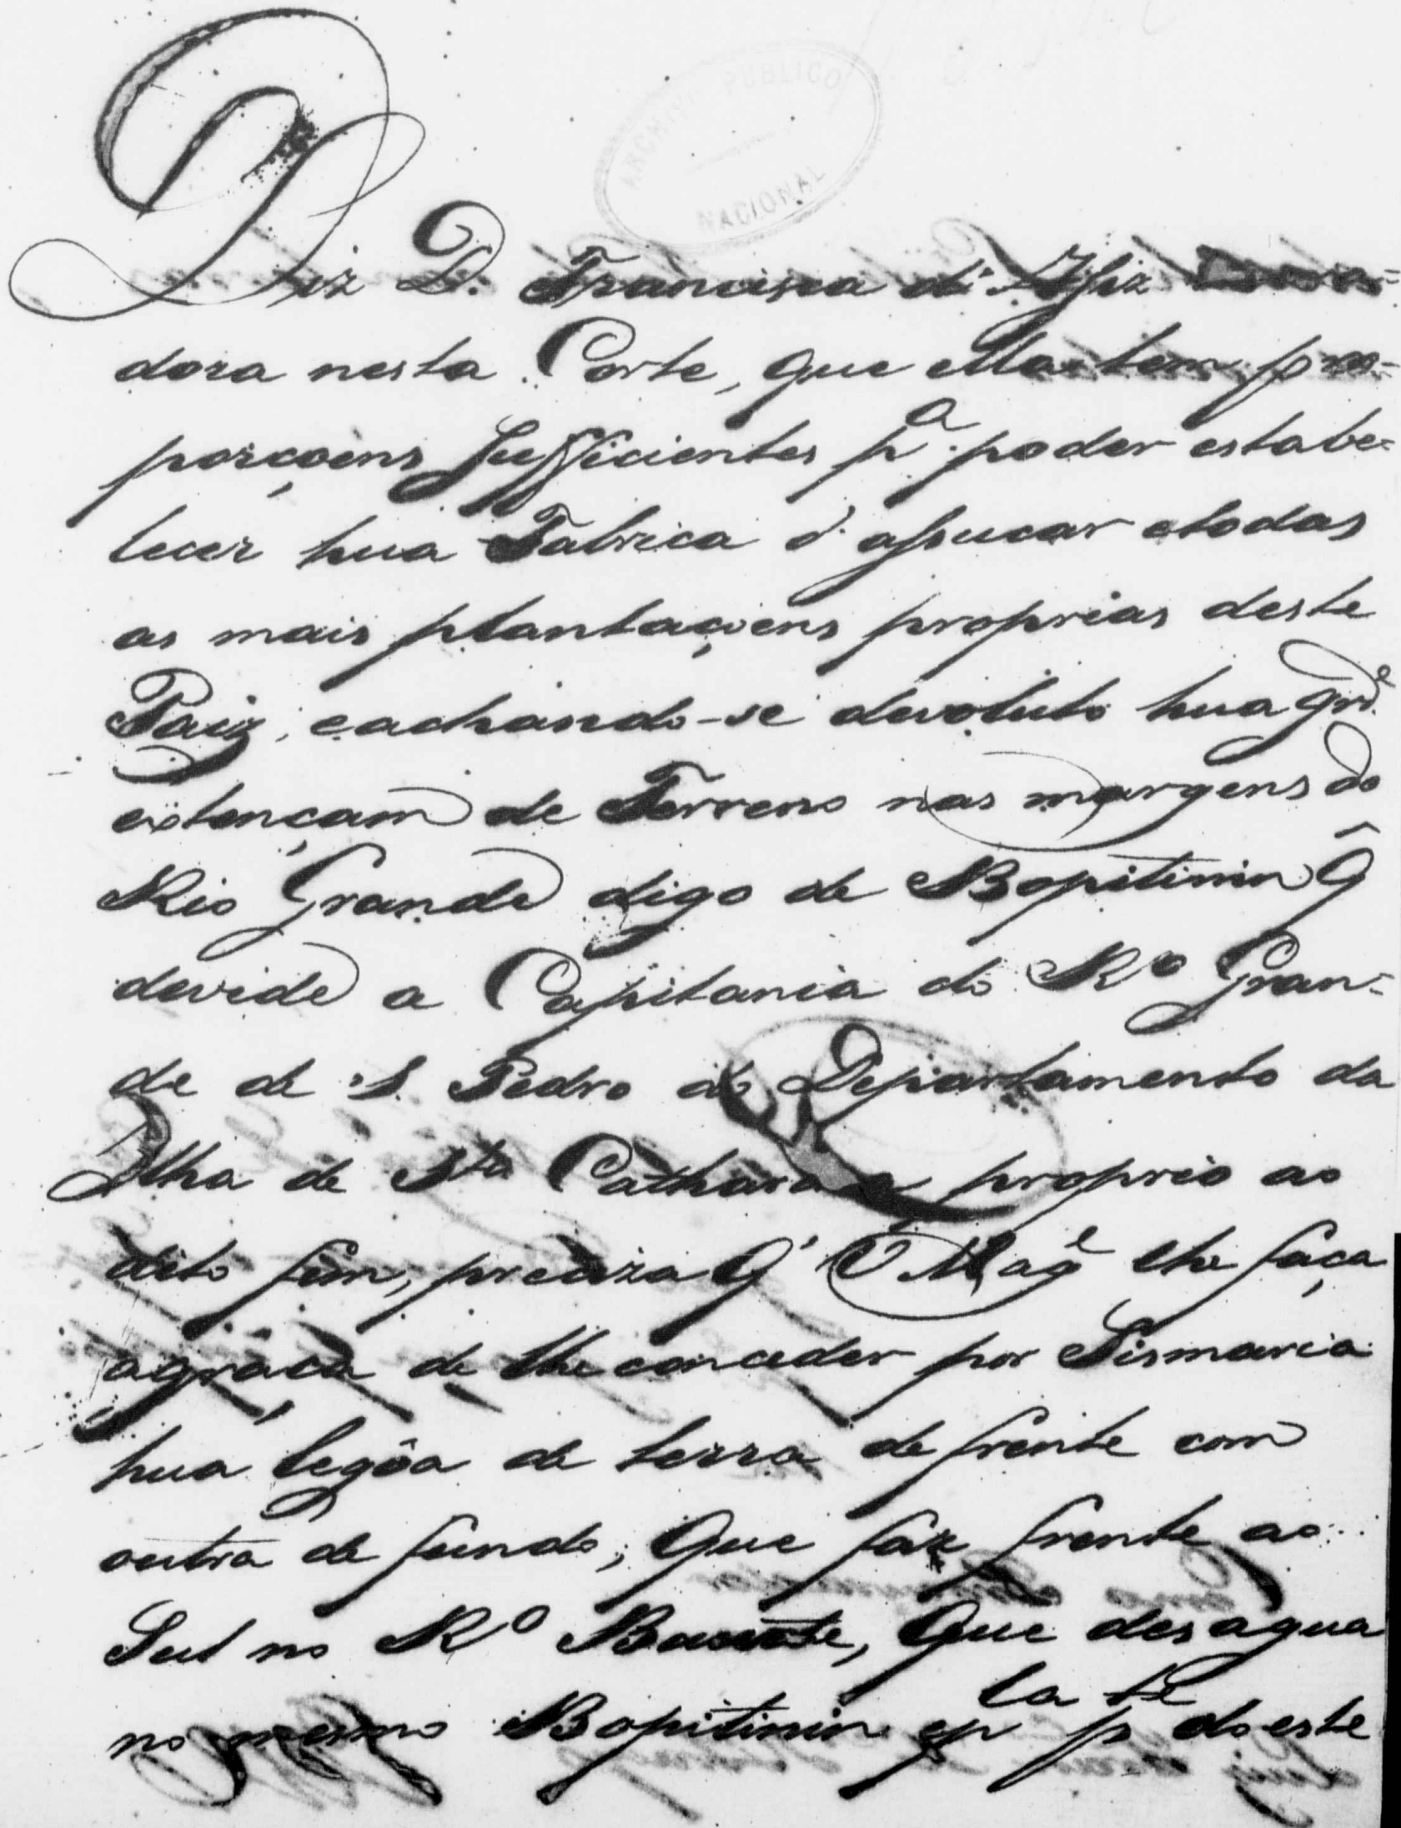 ARCHIVO PUBLICO
NACIONAL
Diz D. Francisca di Assiz
dora nesta Corte, que ella tem pro=
porçoens sufficientes pª. poder estabe=
lecer hua Fabrica d'assucar etodas
as mais plantaçoens proprias deste
Paiz, eachando-se devoluto hua grd.ᵉ
extençam de Terreno nas margens do
Rio Grande digo de Bopitinin q̂
devide a Capitania do Rº Gran=
de de S. Pedro ao Departamento da
Ilha de Sta Catharina proprio ao
dito fim, preciza q' V Magᵉ lhe faça
agraça de lhe conceder por Sismaria
hua legôa de terra de frente com
outra de fundo; que faz frente ao
Sul no Rº que desagua
no mesmo Bopitinin epla pte doeste